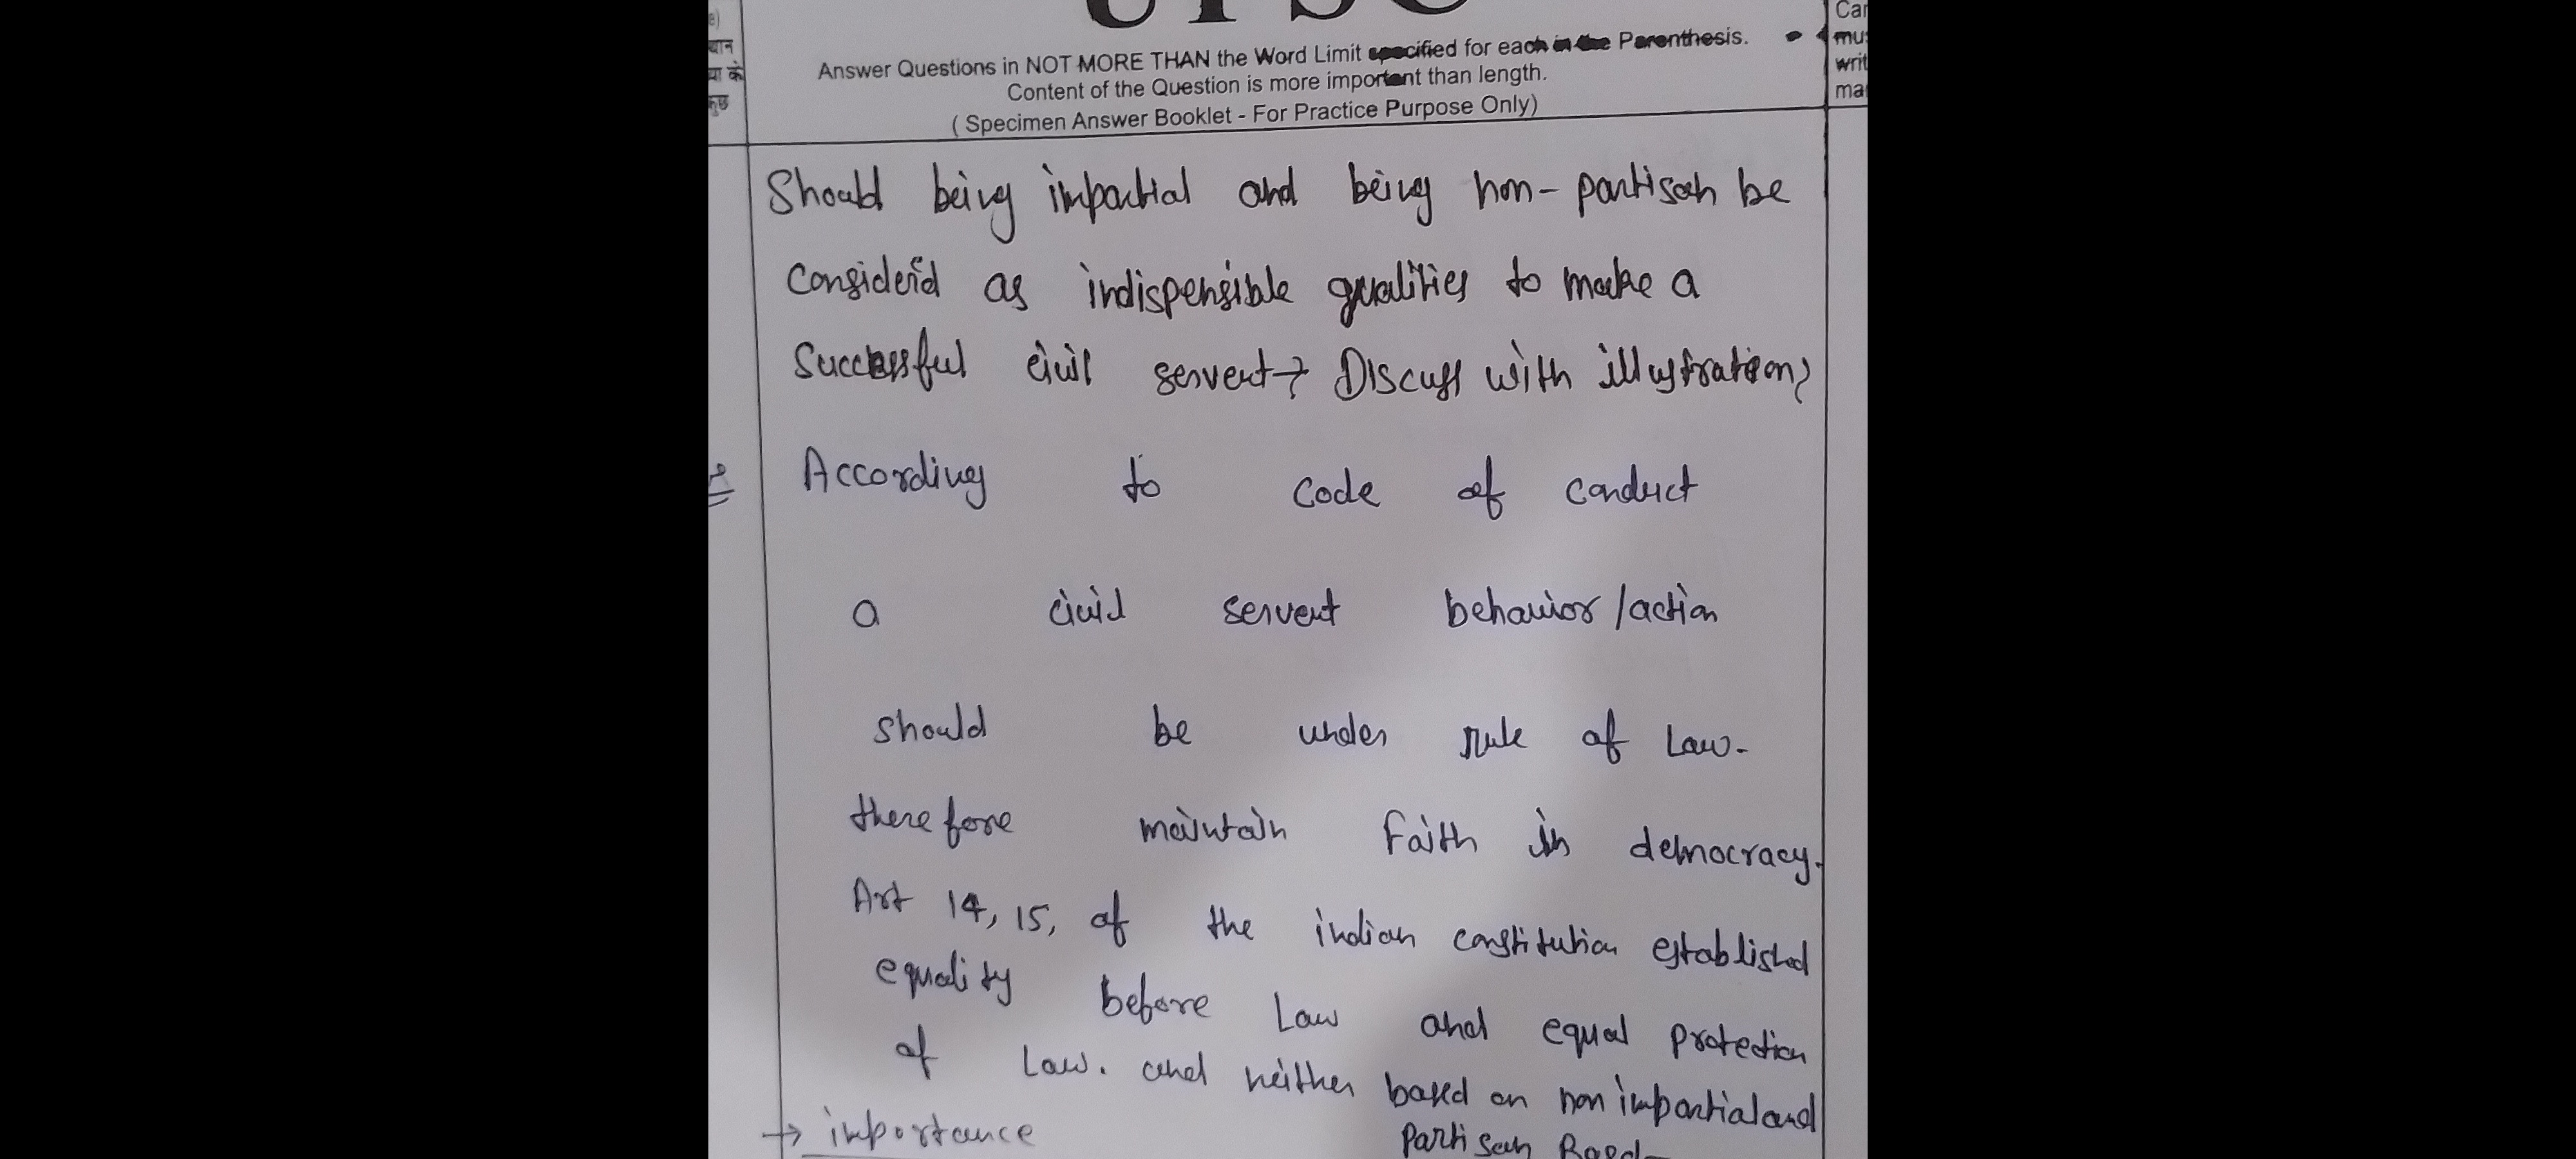 UPSC
e)
Answer Questions in NOT MORE THAN the Word Limit specified for each in the Parenthesis.
Content of the Question is more important than length.
( Specimen Answer Booklet - For Practice Purpose Only)
Should being impartial and being non-partisan be
Considered as indispensible qualities to make a
Successful civil servent? Discuss with illustration?
According to code of conduct
a civil servent behavior/action
should be under rule of Law.
therefore maintain faith in democracy.
Art 14, 15, of the indian constitution established
equality before Law and equal protection
of Law. and neither based on non impartial and
partisan Based
→ importance
यान
या के
कुछ
Can
mus
writ
ma